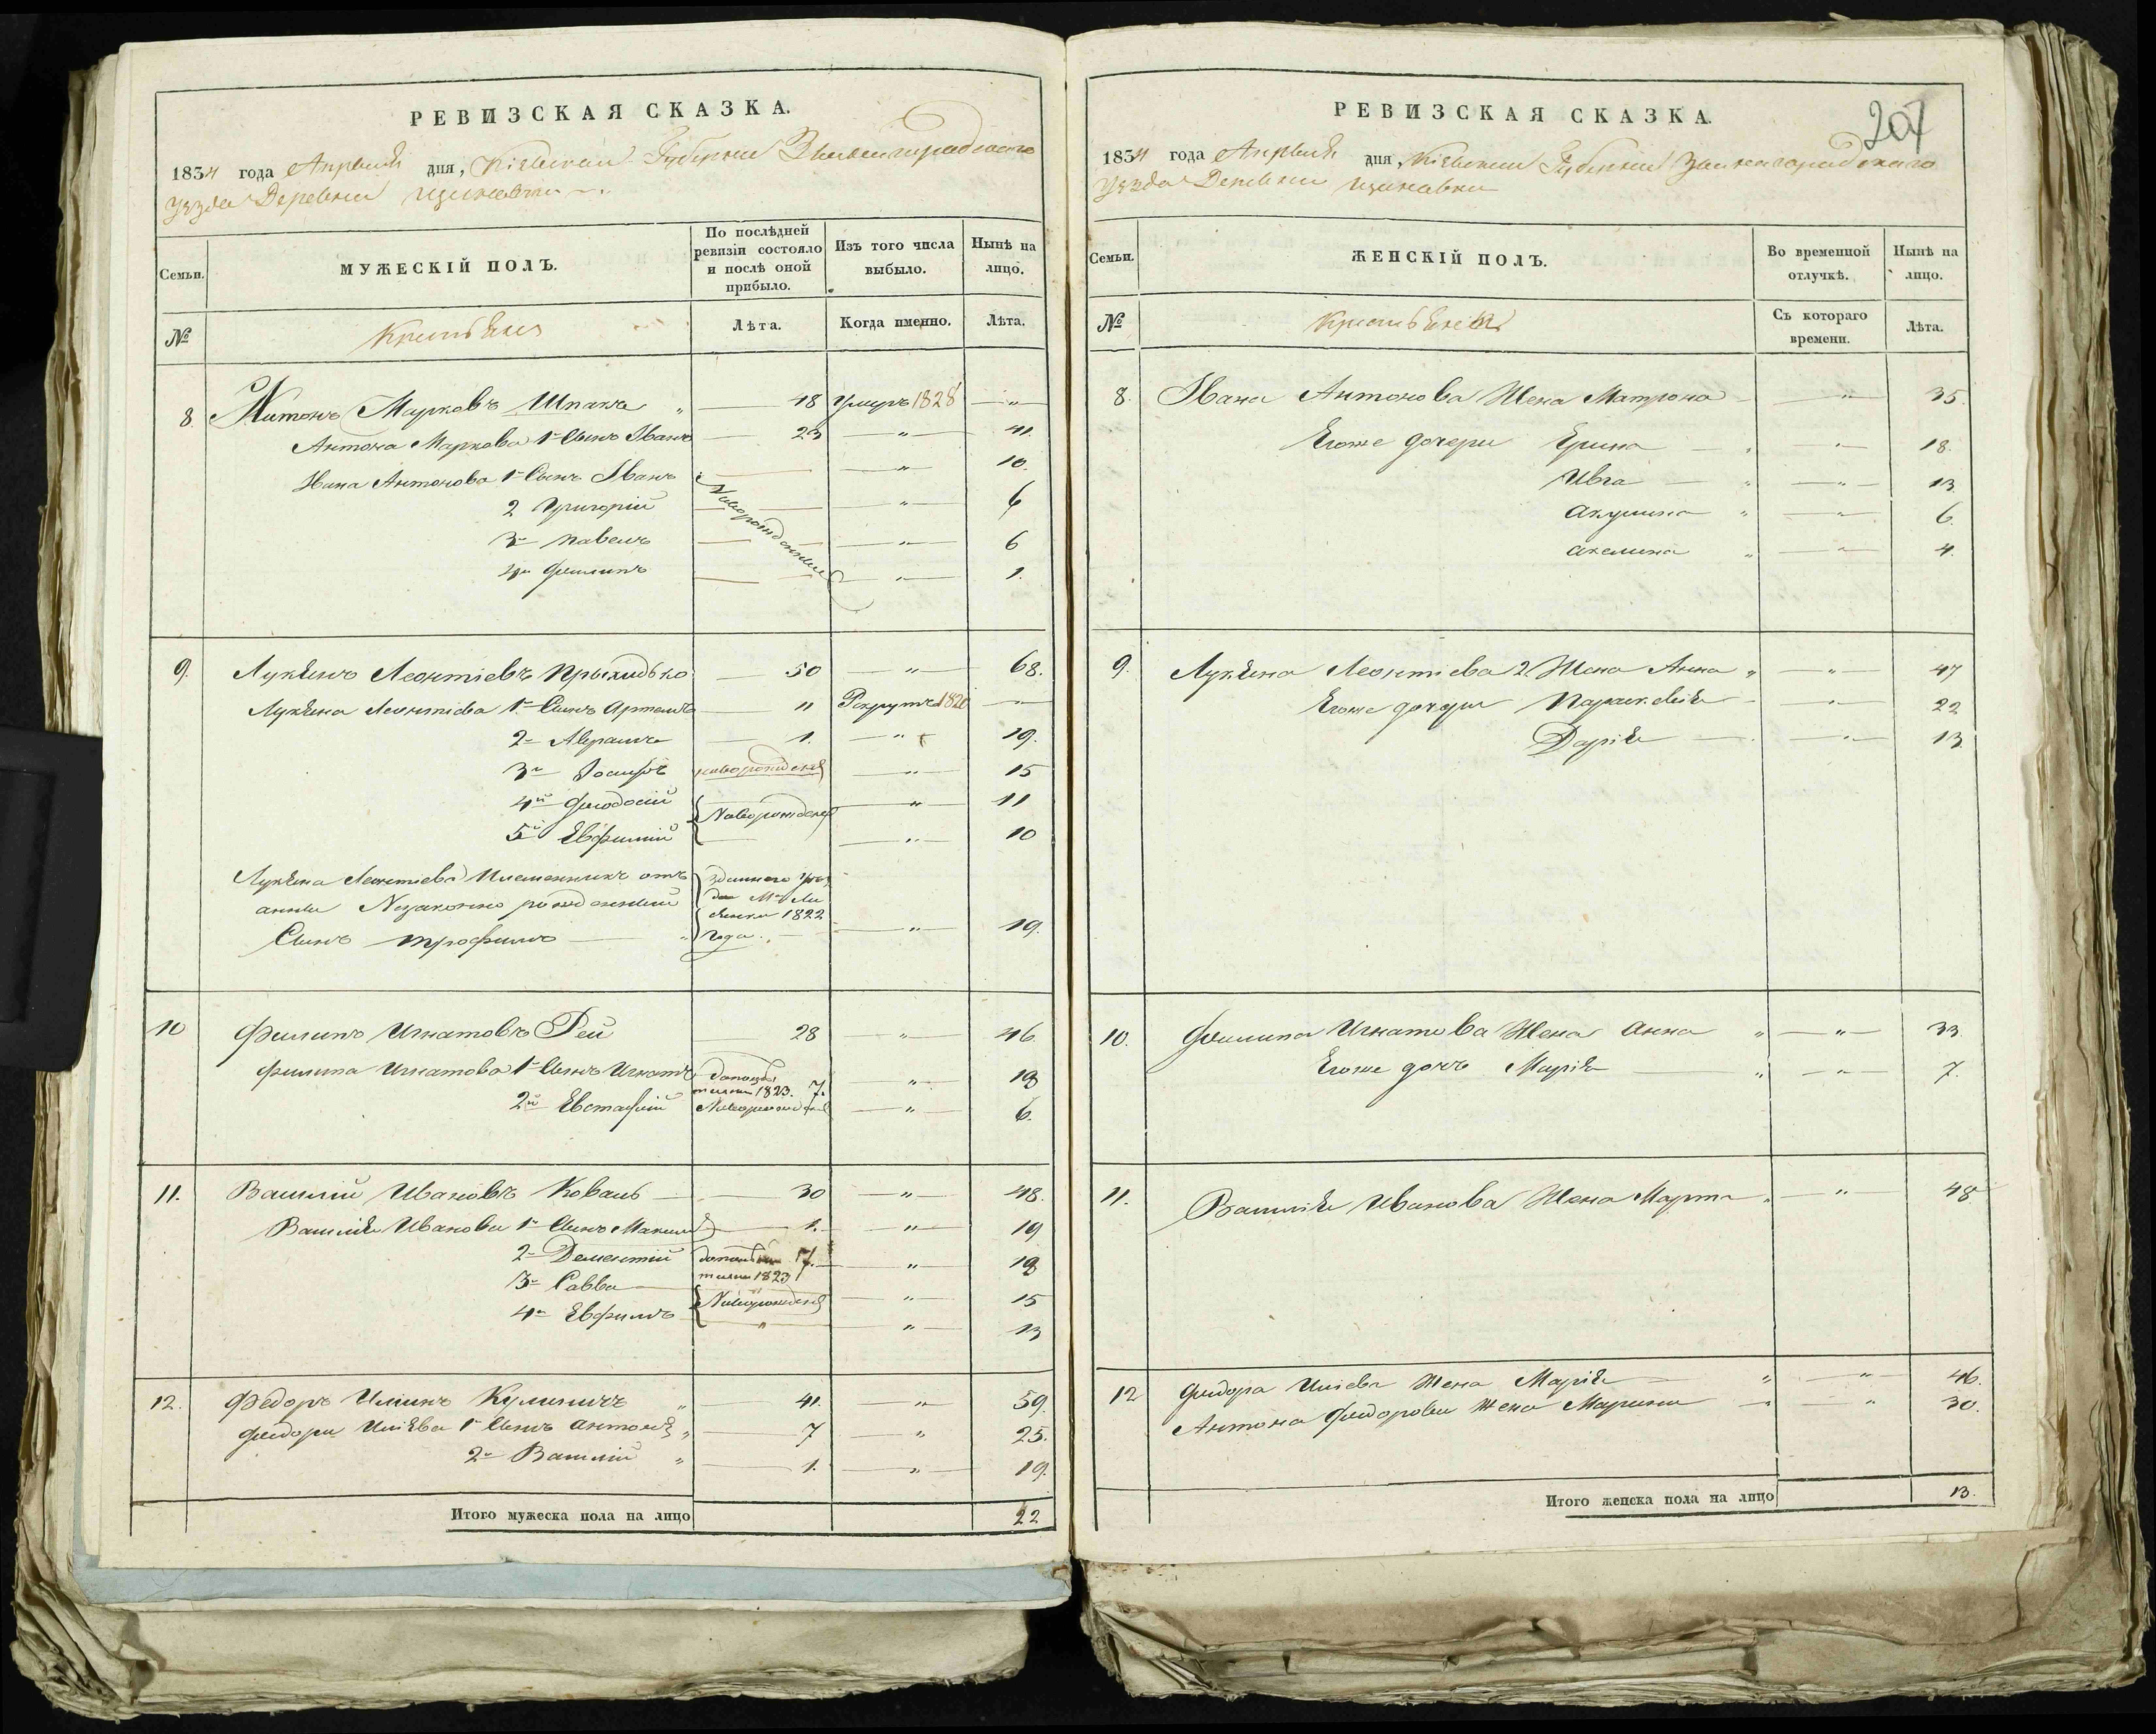 РЕВИЗСКАЯ СКАЗКА.
1834 года Апреля дня, Кіевской Губерніи Звенигородскаго
Уѣзда Деревни
Семьи.
МУЖЕСКІЙ ПОЛЪ.
По послѣдней ревизіи состояло и послѣ оной прибыло.
Изъ того числа выбыло.
Нынѣ на лицо.
№
Крестьяне
Лѣта.
Когда именно.
Лѣта.
8 Антонъ Марковъ Шпакъ " — 48 Умеръ 1828 — " —
Антона Маркова 1й Сынъ Иванъ — 23 — " — 41.
Ивана Антонова 1й Сынъ Иванъ — " — 10.
2 Григорій — " — 6
3й Павелъ — " — 6
4й Филипъ — " — 1.
Новорожденные
9. Лукьянъ Леонтіевъ Прыходько — 50 — " — 68.
Лукьяна Леонтіева 1й Сынъ Артемъ — 11 Рекрутъ 1820 — " —
2й Аврамъ — 1. — " 19.
3й Іосифъ новорожден — " — 15
4й Феодосій — " — 11
Новорожден
5й Евфимій — " — 10
Лукьяна Леонтіева Племенникъ отъ
анны Незаконно рожденный
1822
Сынъ трофимъ — " года. — " — 19.
10 Филипъ Игнатовъ Рей 28 — " — 46.
Филипа Игнатова 1й Сынъ Игнатъ 1823. 7. " — 18
2й Евстафій Новорожден — " — 6.
11. Василій Ивановъ Коваль — 30 — " — 48.
Василія Иванова 1й Сынъ Максим — 1. — " — 19
2й Дементій 7. — " — 18
1823
3й Савва — " — 15
Новорожден
4й Евфимъ " — " — 13
12. Федоръ Илинъ Кулиничъ " 41. — " — 59.
Федора Иліева 1й Сынъ Антонъ " — 7 — " — 25.
2й Василій " — 1. — " — 19.
Итого мужеска пола на лицо 22
РЕВИЗСКАЯ СКАЗКА.
207
1834 года Апреля дня, Кіевской Губерніи Звенигородскаго
Уѣзда Деревни
Семьи.
ЖЕНСКІЙ ПОЛЪ.
Во временной отлучкѣ.
Нынѣ на лицо.
№
Съ котораго времени.
Лѣта.
8. Ивана Антонова Жена Матрона — " — 35.
Егоже дочери Ерина — " — 18.
Ивга — " — 13.
Акулина " — " — 6.
акелина " — " — 4.
9. Лукьяна Леонтіева 2 Жена Анна " — " — 47
Егоже дочери Параскевія — " — 22
Дарія — " — 13.
10. Филипа Игнатова Жена анна " — " — 33.
Егоже дочь Марія — " — " — 7.
11. Василія Иванова Жена Марта " — " — 48
12 Федора Иліева Жена Марія — " — " — 46.
Антона Федорова Жена Марина — " — " 30.
Итого женска пола на лицо 13.